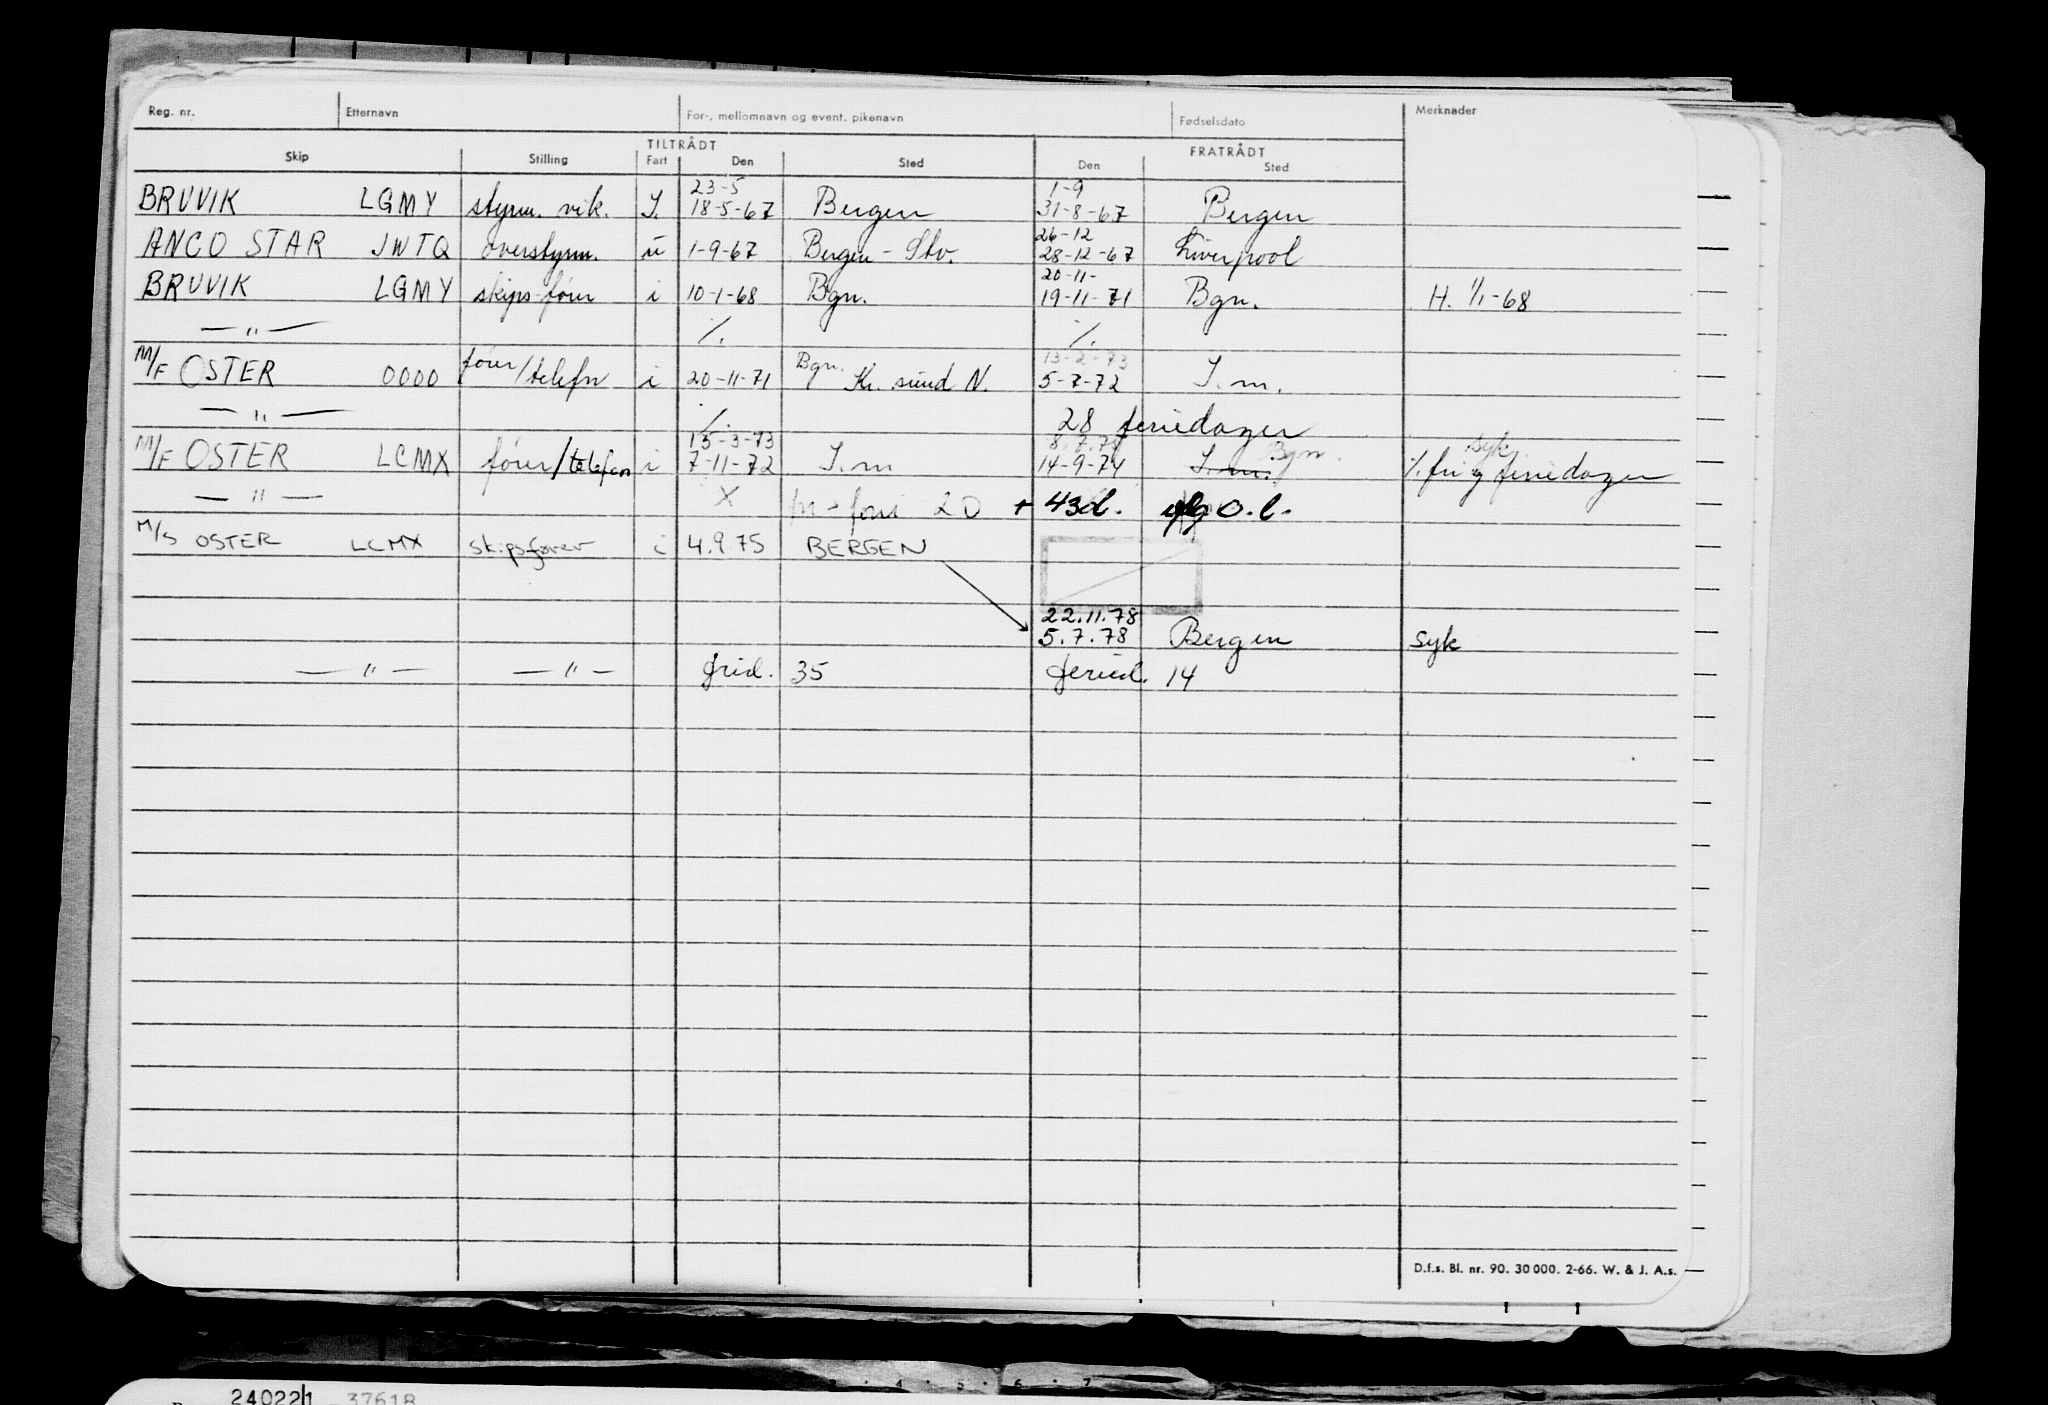 Reg. nr. Etternavn For-, mellomnavn og event. pikenavn Fødselsdato Merknader
TILTRÅDT FRATRÅDT
Skip Stilling Fart Den Sted Den Sted
23-5 1-9
BRUVIK LGMY styrm. vik. I. 18-5-67 Bergen 31-8-67 Bergen
26-12
ANCO STAR JWTQ overstyrm. u 1-9-67 Bergen - Stv. 28-12-67 Liverpool
20-11-
BRUVIK LGMY skips-fører i 10-1-68 Bgn. 19-11-71 Bgn. H. 1/1-68
— " — ./. ./.
13-2-73
M/F OSTER 0000 fører/telefn i 20-11-71 Bgn. Kr. sund N. 5-7-72 I.m.
— " — ./. 28 feriedager
15-3-73 8.7.75 Bgn. syk
M/F OSTER LCMX fører/telefon i 7-11-72 I.m 14-9-74 I.m. ./. fri og feriedager
— " — X 20 + 43d. o.l.
M/S OSTER LCMX skipsfører i 4.9.75 BERGEN
22.11.78
5.7.78 Bergen syk
— " — — " — frid. 35 feried. 14
D.f.s. Bl. nr. 90. 30 000. 2-66. W. & J. A.s.
240221 37618